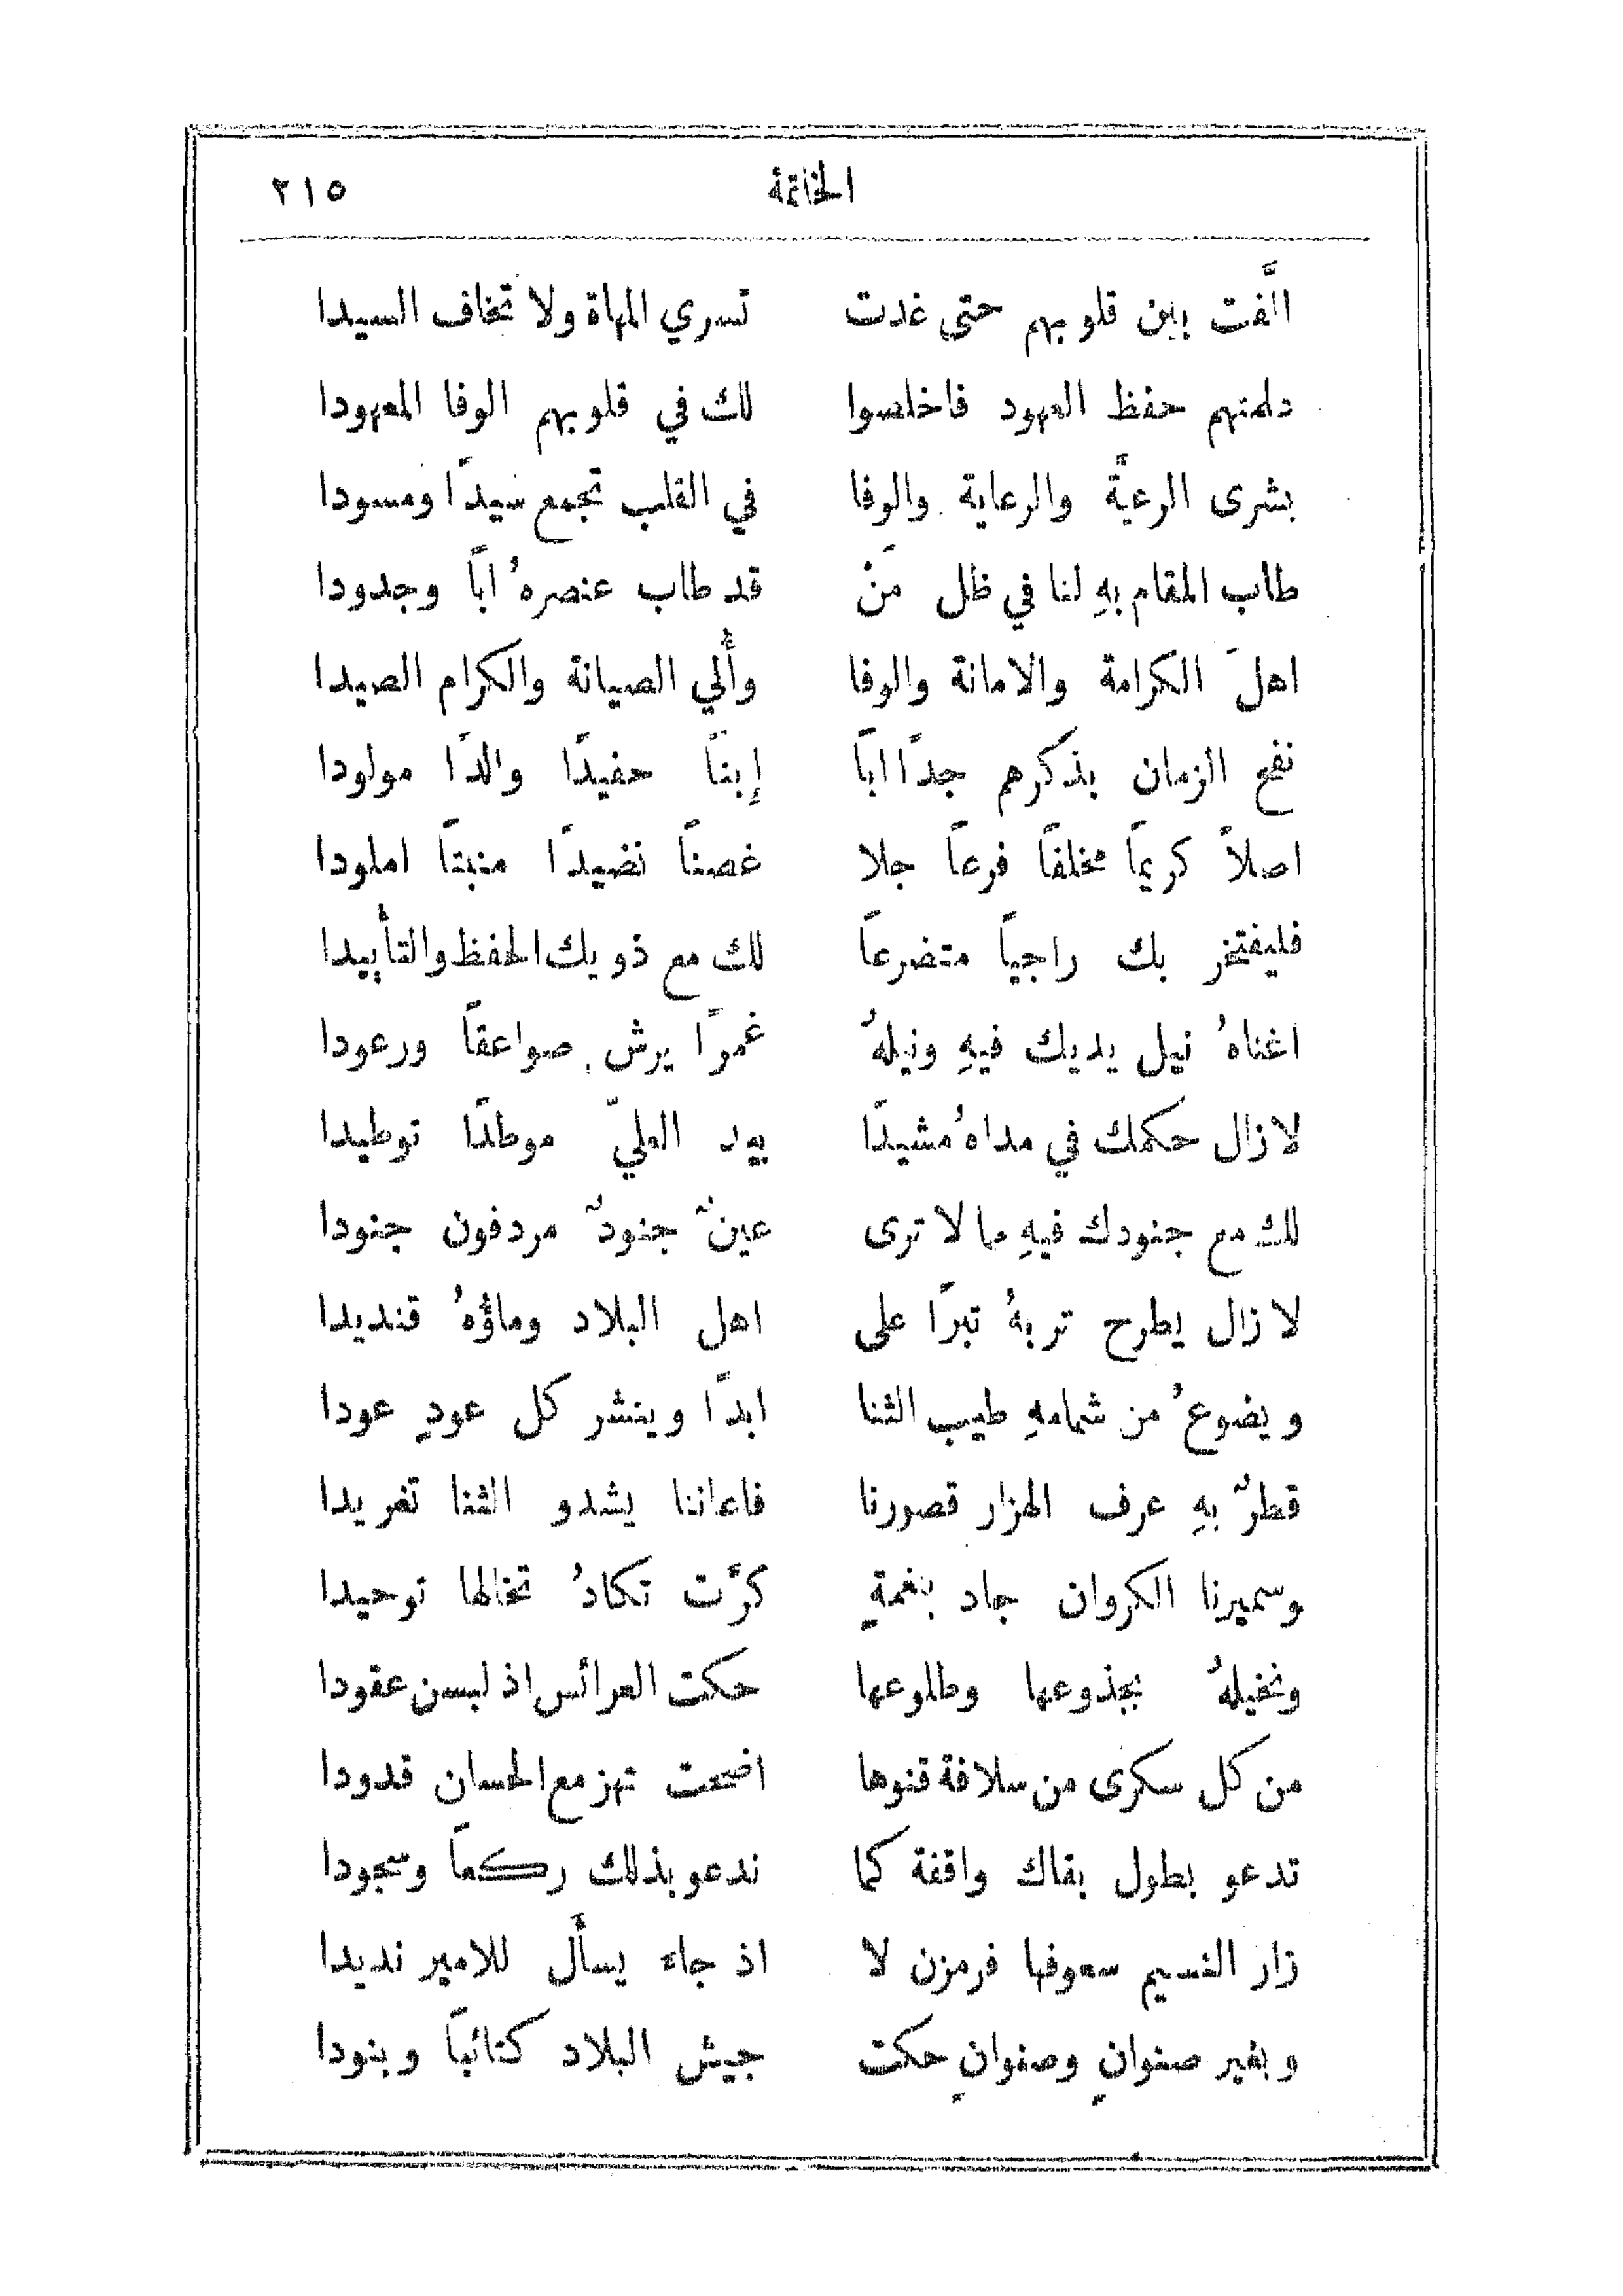 الخاتمة ٢١٥
الَّفت بين قلوبهم حتى غدت تسري المهاة ولا تخاف السيدا
دلمتهم حفظ العهود فاخلصوا لك في قلوبهم الوفا المعهودا
بشرى الرعيَّة والرعاية والوفا في القلب تجمع سيدًا ومسودا
طاب المقام بهِ لنا في ظل مَنْ قد طاب عنصرهُ ابًا وجدودا
اهلَ الكرامة والامانة والوفا وأُلي الصيانة والكرام الصيدا
نفح الزمان بذكرهم جدًا ابًا إبنًا حفيدًا والدًا مولودا
اصلاً كريمًا مخلفًا فرعًا جلا غصنًا نضيدًا منبتًا املودا
فليفتخر بك راجيًا متضرعًا لك مع ذويك الحفظ والتأييدا
اغناهُ نيل يديك فيهِ ونيلهُ غمرًا يرش صواعقًا ورعودا
لا زال حكمك في مداهُ مشيدًا بيد العليّ موطدًا توطيدا
لك مع جنودك فيهِ ما لا ترى عينٌ جنودٌ مردفون جنودا
لا زال يطرح تربهُ تبرًا على اهل البلاد وماؤُهُ قنديدا
ويضوعُ من شمامهِ طيب الثنا ابدًا وينشر كل عودٍ عودا
قطرٌ بهِ عرف الهزار قصورنا فاعاننا يشدو الثنا تغريدا
وسميرنا الكروان جاد بنغمةٍ كرَّت تكادُ تخالها توحيدا
ونخيلهُ بجذوعها وطلوعها حكت العرائس اذ لبسن عقودا
من كل سكرى من سلافة قنوها اضحت تهز مع الحسان قدودا
تدعو بطول بقاك واقفة كما ندعو بذلك ركعًا وسجودا
زار النسيم سعوفها فرمزن لا اذ جاء يسأَل للامير نديدا
وبغير صنوانٍ وصنوانٍ حكت جيش البلاد كتائبًا وبنودا